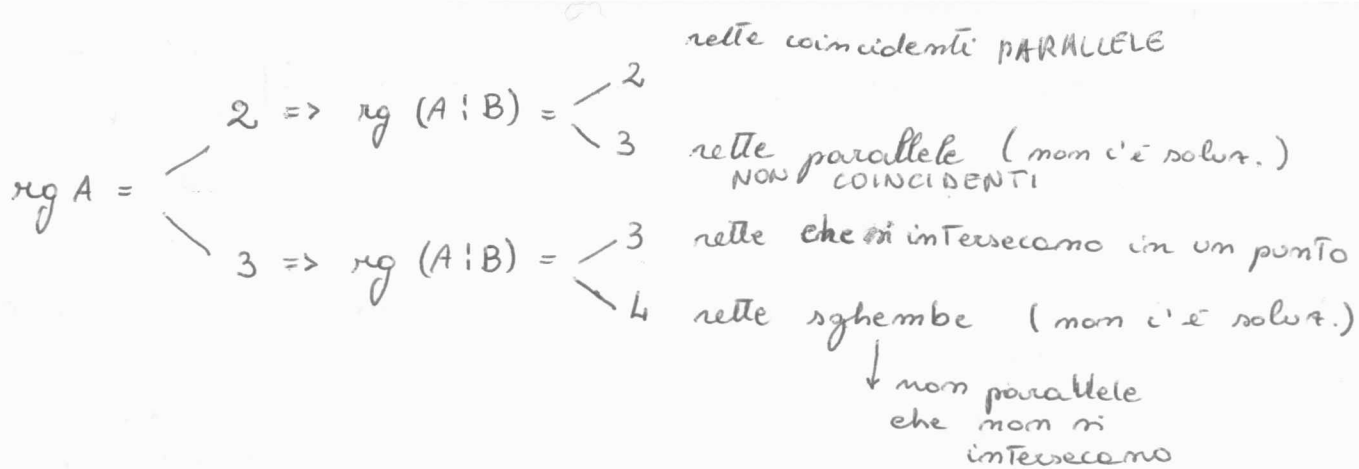 rette coincidenti PARALLELE
2 => rg (A ¦ B) = 2
3 rette parallele (non c'è soluz.)
NON COINCIDENTI
rg A =
3 => rg (A ¦ B) = 3 rette che si intersecano in un punto
4 rette sghembe (non c'è soluz.)
↓ non parallele
che non si
intersecano